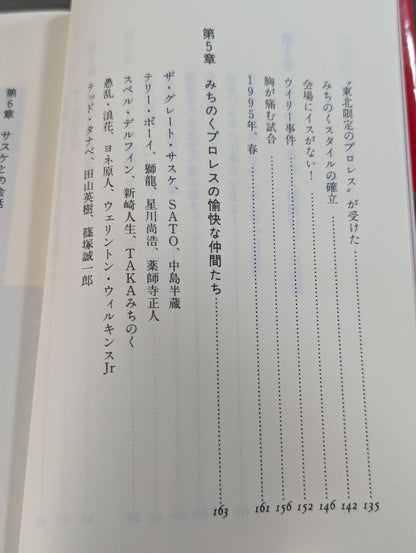 〝東北限定のプロレス〟が受けた……135
みちのくスタイルの確立……142
会場にイスがない！……146
ウイリー事件……152
胸が痛む試合……156
1995年、春……161
第5章　みちのくプロレスの愉快な仲間たち……163
ザ・グレート・サスケ、SATO、中島半蔵
テリー・ボーイ、獅龍、星川尚浩、薬師寺正人
スペル・デルフィン、新崎人生、TAKAみちのく
愚乱・浪花、ヨネ原人、ウェリントン・ウィルキンスJr
テッド・タナベ、田山英樹、篠塚誠一郎
第6章　サスケとの会話